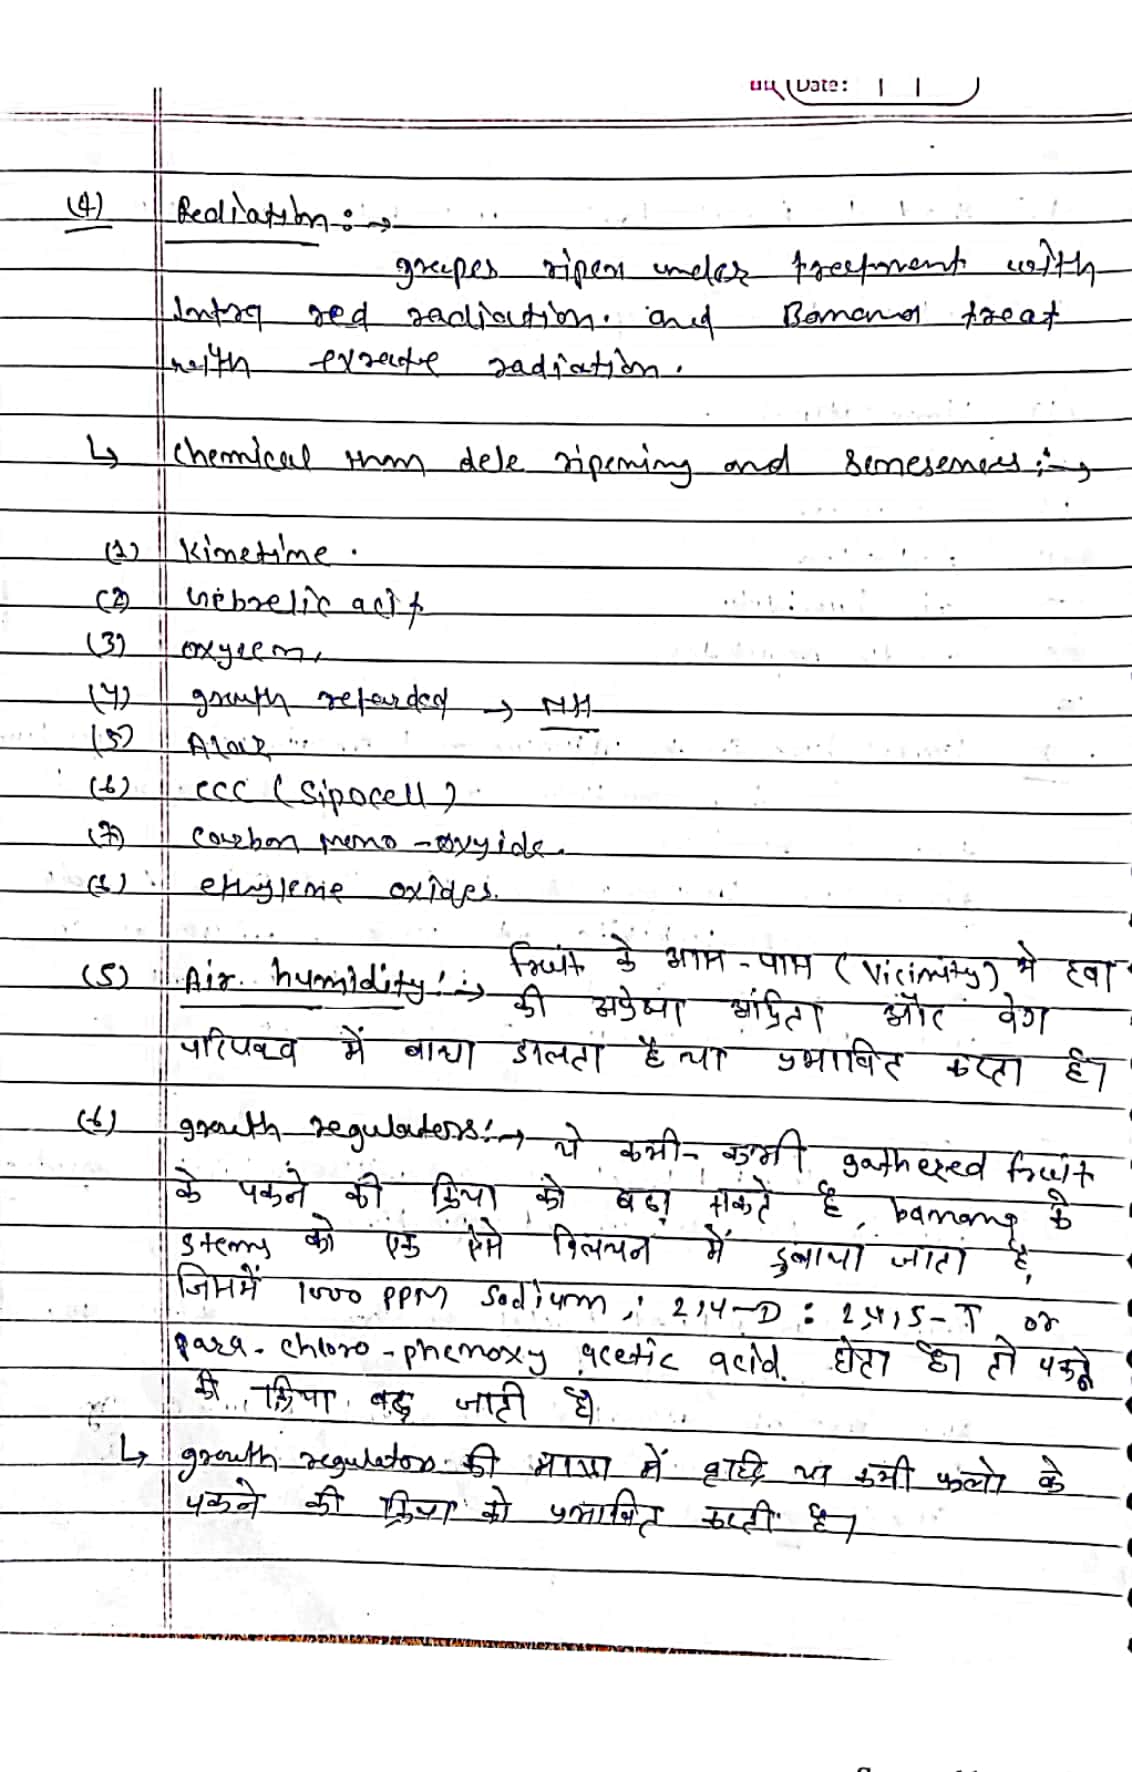 Date: | |
(4) Rediation :→
greepes ripen under treetment with
Intra red radiation. and Banana treat
with exraete radiation.
↳ chemical than dele ripening and senesences :→
(1) Kinetine .
(2) Gebrelic acit
(3) oxyeen,
(4) growth retarded → MH
(5) Alar
(6) CCC (Sipocell)
(7) Carbon mono-oxyide.
(8) ethylene oxides.
(5) Air humidity :→ fruit के आस-पास (Vicinity) मे हवा
की अपेष्या आंद्रिता और वेग
परिपक्व में बाधा डालता है या प्रभावित करता है।
(6) growth regulaters :→ ये कभी-कभी gathered fruit
के पकने की क्रिया को बढा सकते है, banana के
stems को एक ऐसे विलयन में डुबाया जाता है,
जिसमें 1000 PPM Sodium ; 2,4-D : 2,4,5-T or
para-chloro-phenoxy acetic acid. होता है। तो पकने
की क्रिया बढ़ जाती है।
↳ growth regulators की मात्रा में वृद्धि या कमी फलो के
पकने की क्रिया को प्रभावित करती है।